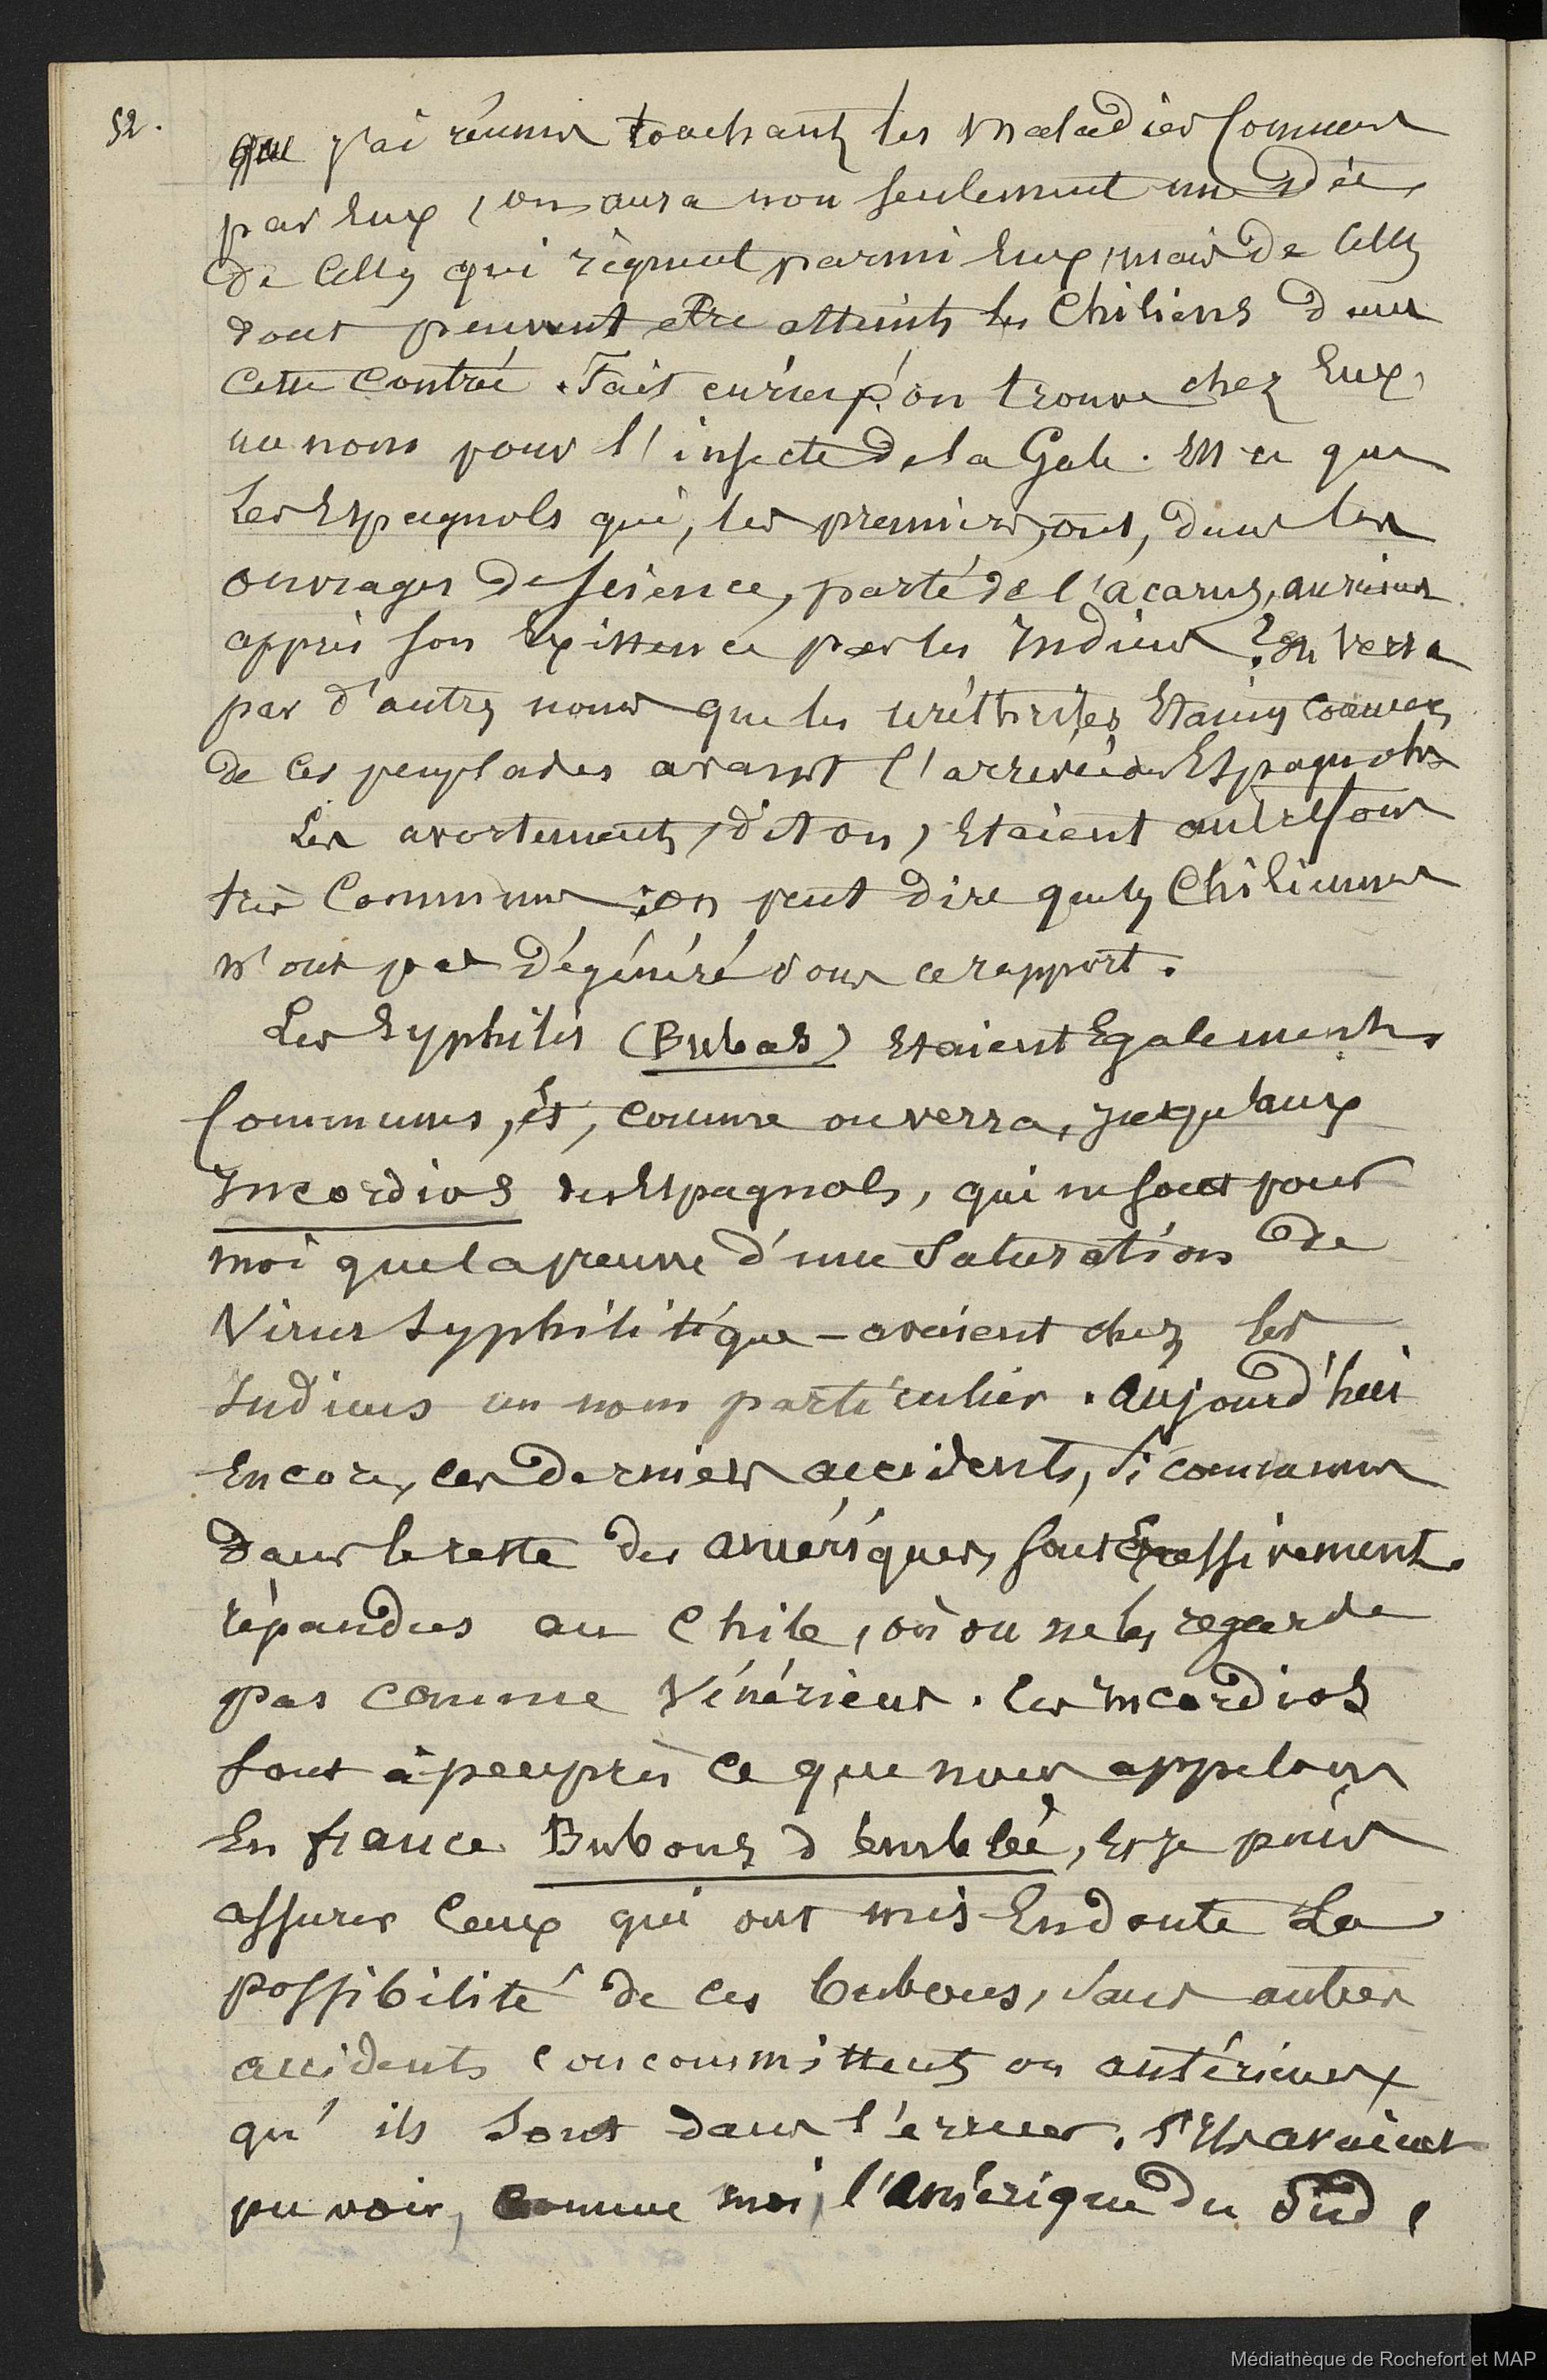 52.
que j'ai réunis touchant les maladies connues
par Eux, on aura non seulement une idée
de celles qui règnent parmi Eux, mais de celles
dont peuvent etre atteints les Chiliens dans
cette contrée. Fait curieux! on trouve chez Eux,
un nom pour l'insecte de la Gale. Est-ce que
les Espagnols qui, les premiers, ont, dans les
ouvrages de science, parlé de l'acarus, auraient
appris son Existence par les Indiens? On verra
par d'autres noms que les uréthrites Etaient connues
de ces peuplades avant l'arrivée des Espagnols
Les avortements, dit on, Etaient autrefois
très communs; on peut dire que les Chiliennes
n'ont pas dégénéré sous ce rapport.
Les Syphilis (Bubas) Etaient Egalement
communes, et, comme on verra, jusqu'aux
Incordios des Espagnols, qui ne sont pour
moi que la preuve d'une saturation de
Virus Syphilitique - avaient chez les
Indiens un nom particulier. Aujourd'hui
Encore, ces derniers accidents, si communs
dans le reste des amériques, sont Excessivement
répandus au Chile, où on ne les regarde
pas comme Vénériens. Les Incordios
sont à peu près ce que nous appelons
En france Bubons d'Emblée, Et je puis
assurer Ceux qui ont mis En doute la
possibilité de ces bubons, sans autres
accidents concommittents ou antérieurs
qu'ils sont dans l'erreur. S'Ils avaient
pu voir, comme moi, l'Amérique du Sud,
Médiathèque de Rochefort et MAP